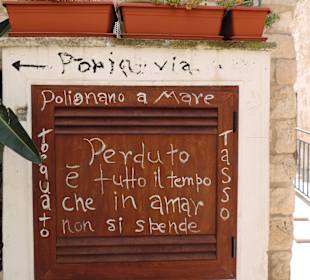 ← Poria via
Polignano a Mare
Torquato
Perduto
è tutto il tempo
che in amar
non si spende
Tasso